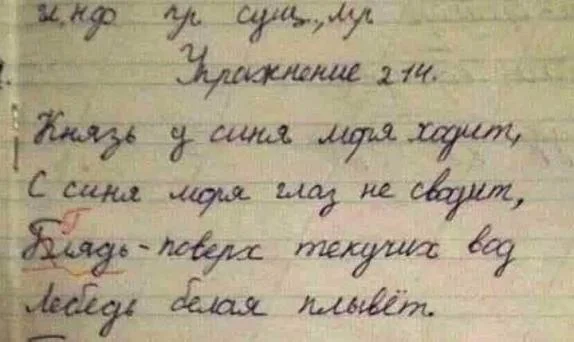 и.нф пр сущ., мр
Упражнение 214.
Князь у синя моря ходит,
С синя моря глаз не сводит,
Г
Блядь - поверх текучих вод
Лебедь белая плывёт.